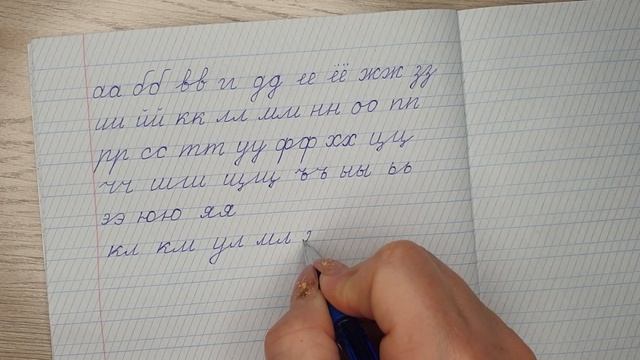 аа бб вв гг дд ее ёё жж зз
ии йй кк лл мм нн оо пп
рр сс тт уу фф хх цц
чч шш щщ ъъ ыы ьь
ээ юю яя
кл км ул мл